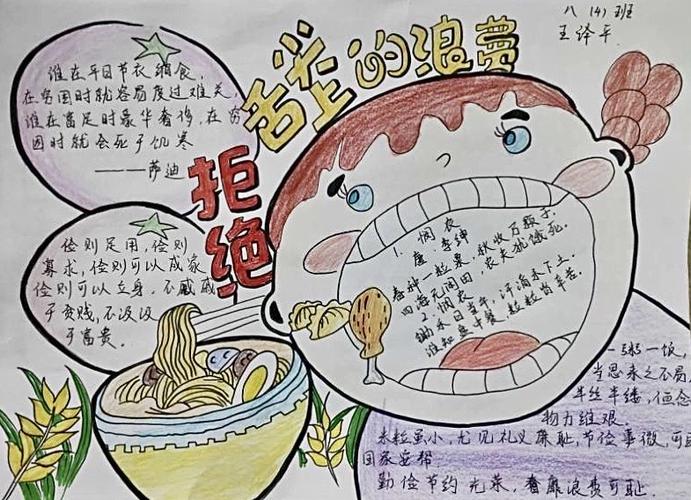 八（4）班
王泽平
拒绝舌尖上的浪费
谁在平日节衣缩食，
在穷困时就容易度过难关，
谁在富足时豪华奢侈，在穷
困时就会死于饥寒
——萨迪
俭则足用，俭则
寡求，俭则可以成家
俭则可以立身。不戚戚
于贫贱，不汲汲
于富贵。
1. 悯农
唐 李绅
春种一粒粟，秋收万颗子。
四海无闲田，农夫犹饿死。
2. 悯农
锄禾日当午，汗滴禾下土。
谁知盘中餐，粒粒皆辛苦。
一粥一饭，
当思来之不易，
半丝半缕，恒念
物力维艰。
米粒虽小，尤见礼义廉耻，节俭事微，可
国家安邦
勤俭节约光荣，奢靡浪费可耻